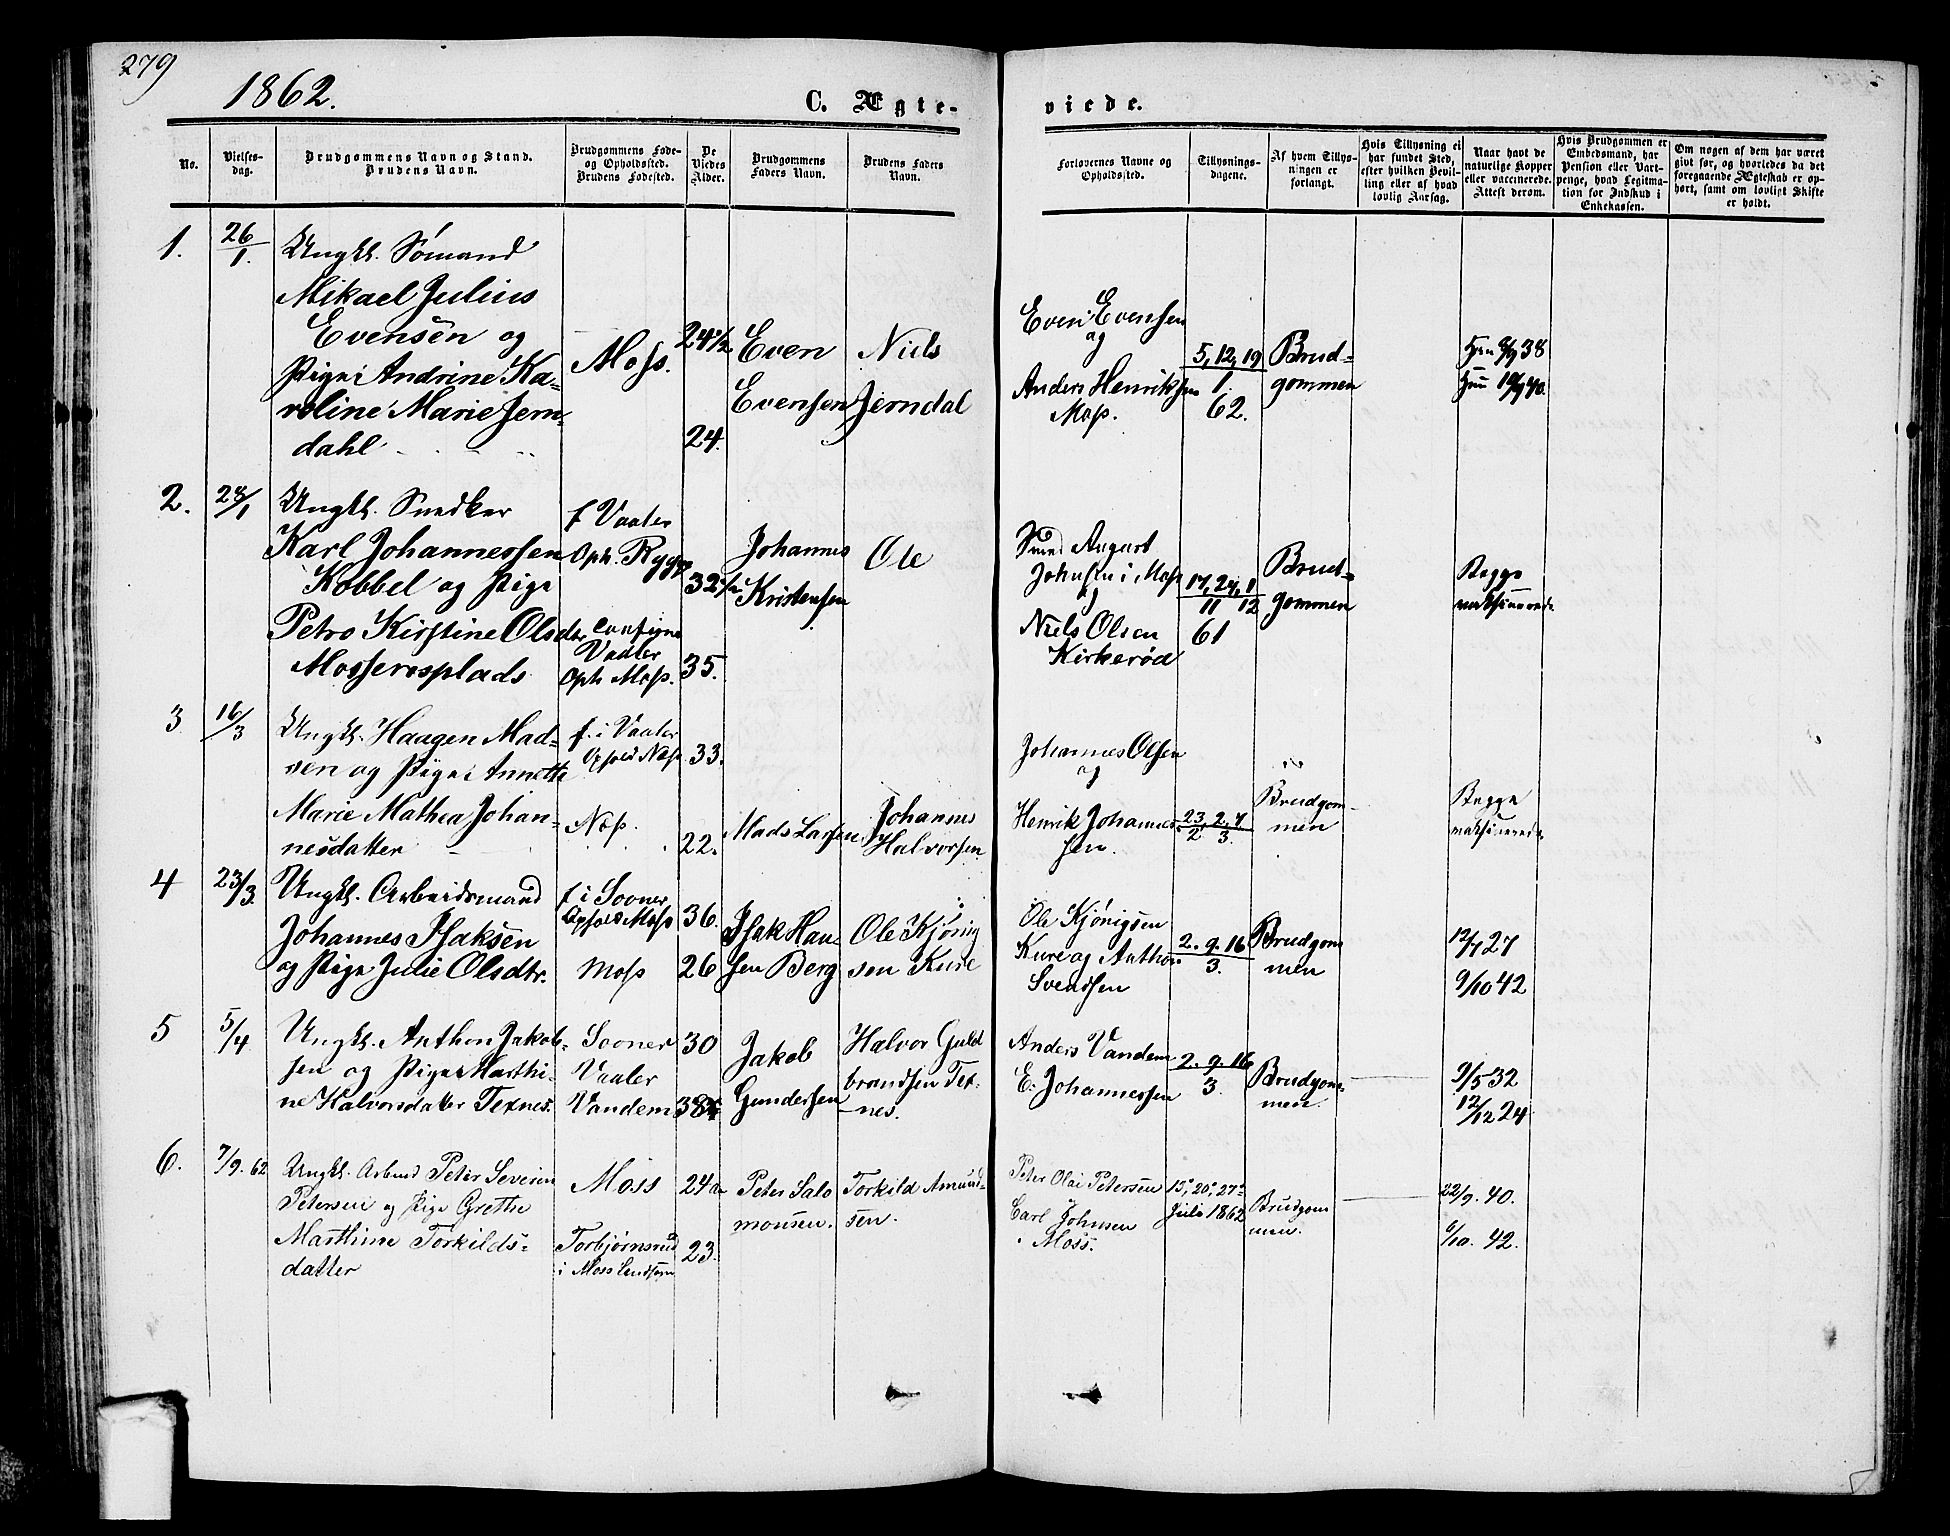 279
1862.
C. Ægte-
viede.
No.
Vielses-
dag.
Brudgommens Navn og Stand.
Brudens Navn.
Brudgommens Føde-
og Opholdssted.
Brudens Fødested.
De
Viedes
Alder.
Brudgommens
Faders Navn.
Brudens Faders
Navn.
Forlovernes Navne og
Opholdssted.
Tillysnings-
dagene.
Af hvem Tillys-
ningen er
forlangt.
Hvis Tillysning ei
har fundet Sted,
efter hvilken Bevil-
ling eller af hvad
lovlig Aarsag.
Naar havt de
naturlige Kopper
eller vaccinerede.
Attest derom.
Hvis Brudgommen er
Embedsmand, har
Pension eller Vart-
penge, hvad Legitima-
tion for Indskud i
Enkekassen.
Om nogen af dem har været
gift før, og hvorledes da det
foregaaende Ægteskab er op-
hørt, samt om lovligt Skifte
er holdt.
1.
26/1.
Ungk. Sömand
Mikael Julius
Evensen og
Pige Andrine Ka-
roline Marie Jern-
dahl
Moss.
24 1/2
24.
Even
Evensen
Niels
Jerndal
Even Evensen
og
Anders Henriksen
Moss.
5, 12, 19
1.
62.
Brud-
gommen
38
40.
2.
28/1
Ungk. Snedker
Karl Johannessen
Kobbel og Pige
Petro Kirstine Olsdtr.
Mosserosplads
f Vaaler
Oph. Rygge
Vaaler
Oph Moss.
32
35.
Johannes
Kristensen
Ole
August
Johnsen i Moss
og
Niels Olsen
Kirkerød
17, 24, 1
11 12
61
Brud-
gommen
Begge
vaksinerede
3
16/3
Ungk. Haagen Mad-
sen og Pige Annette
Marie Mathea Johan-
nesdatter
f. i Vaaler
Ophold Moss
Moss.
33.
22.
Mads Larsen
Johannes
Halvorsen
Johannes Olsen
og
Henrik Johannes-
sen.
23, 2, 7
2 3.
Brudgom-
men
Begge
vaksinerede
4
23/3.
Ungk. Arbeidsmand
Johannes Isaksen
og Pige Julie Olsdtr.
f i Sooner
Ophold Moss
Moss
36.
26
Isak Han-
sen Berg
Ole Kjönig
sen Kure
Ole Kjönigsen
Kure og Anthon
Svendsen
2. 9. 16
3.
Brudgom
men
12/7 27
9/10 42
5
5/4
Ungk. Anthon Jakob-
sen og Pige Marthi-
ne Halvorsdatter Texnes.
Sooner
Vaaler
Vandem
30
38
Jakob
Gundersen
Halvor Guld
brandsen Tex-
nes.
Anders Vandem
E. Johannessen
2. 9. 16
3.
Brudgom-
men.
9/5 32
12/12 24
6.
7/9. 62
Ungk. Arbmd Peter Severin
Petersen og Pige Grethe
Marthine Torkilds-
datter
Moss
Torbjørnsrud
i Moss landsogn
24
23.
Peter Salo
monsen.
Torkild Amund-
sen.
Peter Olai Petersen
Carl Johnsen
Moss.
13, 20, 27
Juli 1862
Brudgom
men.
22/9. 40.
6/10. 42.